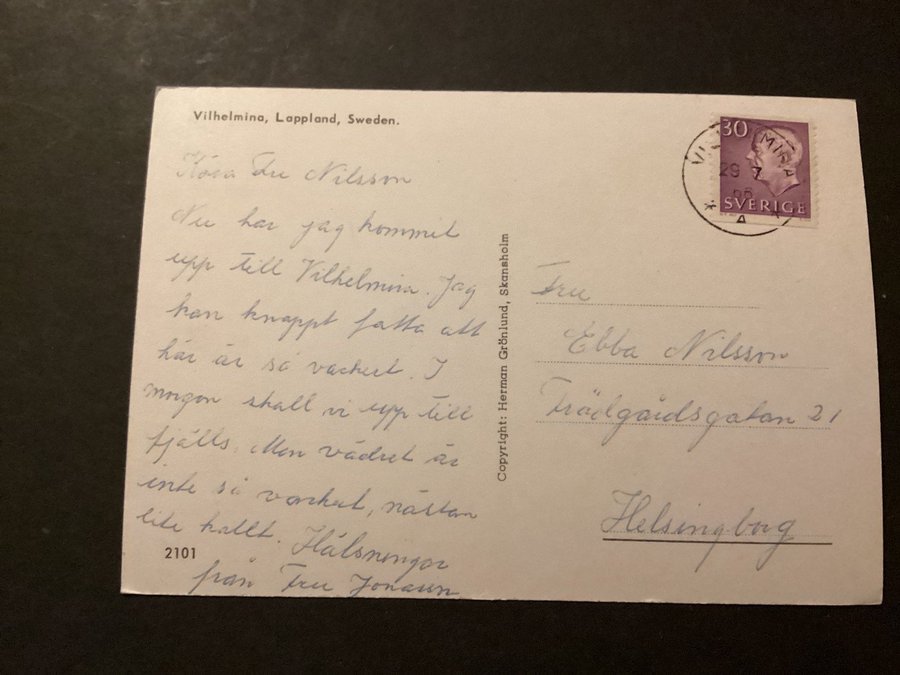 Vilhelmina, Lappland, Sweden.
Kära Fru Nilsson
Nu har jag kommet
upp till Vilhelmina. Jag
kan knappt fatta att
här är så vackert. I
morgon skall vi upp till
fjälls. Men vädret är
inte så vackert, nästan
lite kallt. Hälsningar
från Fru Jonasson
2101
Copyright: Herman Grönlund, Skansholm
30
SVERIGE
29 7
A
Fru
Ebba Nilsson
Trädgårdsgatan 21
Helsingborg